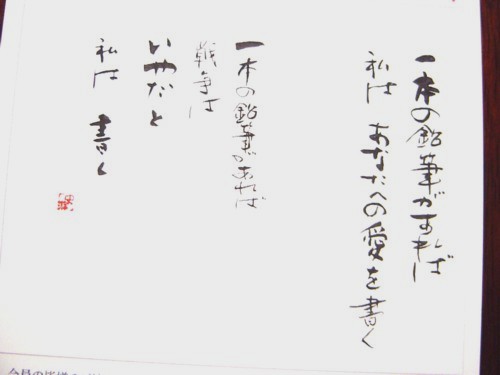 一本の鉛筆があれば
私は あなたへの愛を書く
一本の鉛筆があれば
戦争は
いやだと
私は 書く